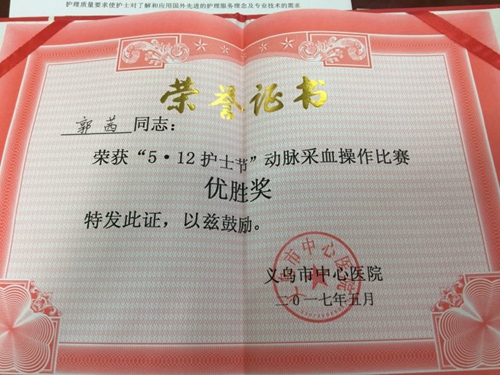 护理质量要求使护士对了解和应用国外先进的护理服务理念及专业技术的需求
荣誉证书
郭茜 同志:
荣获“5·12护士节”动脉采血操作比赛
优胜奖
特发此证，以兹鼓励。
义乌市中心医院
义乌市中心医院
二〇一七年五月